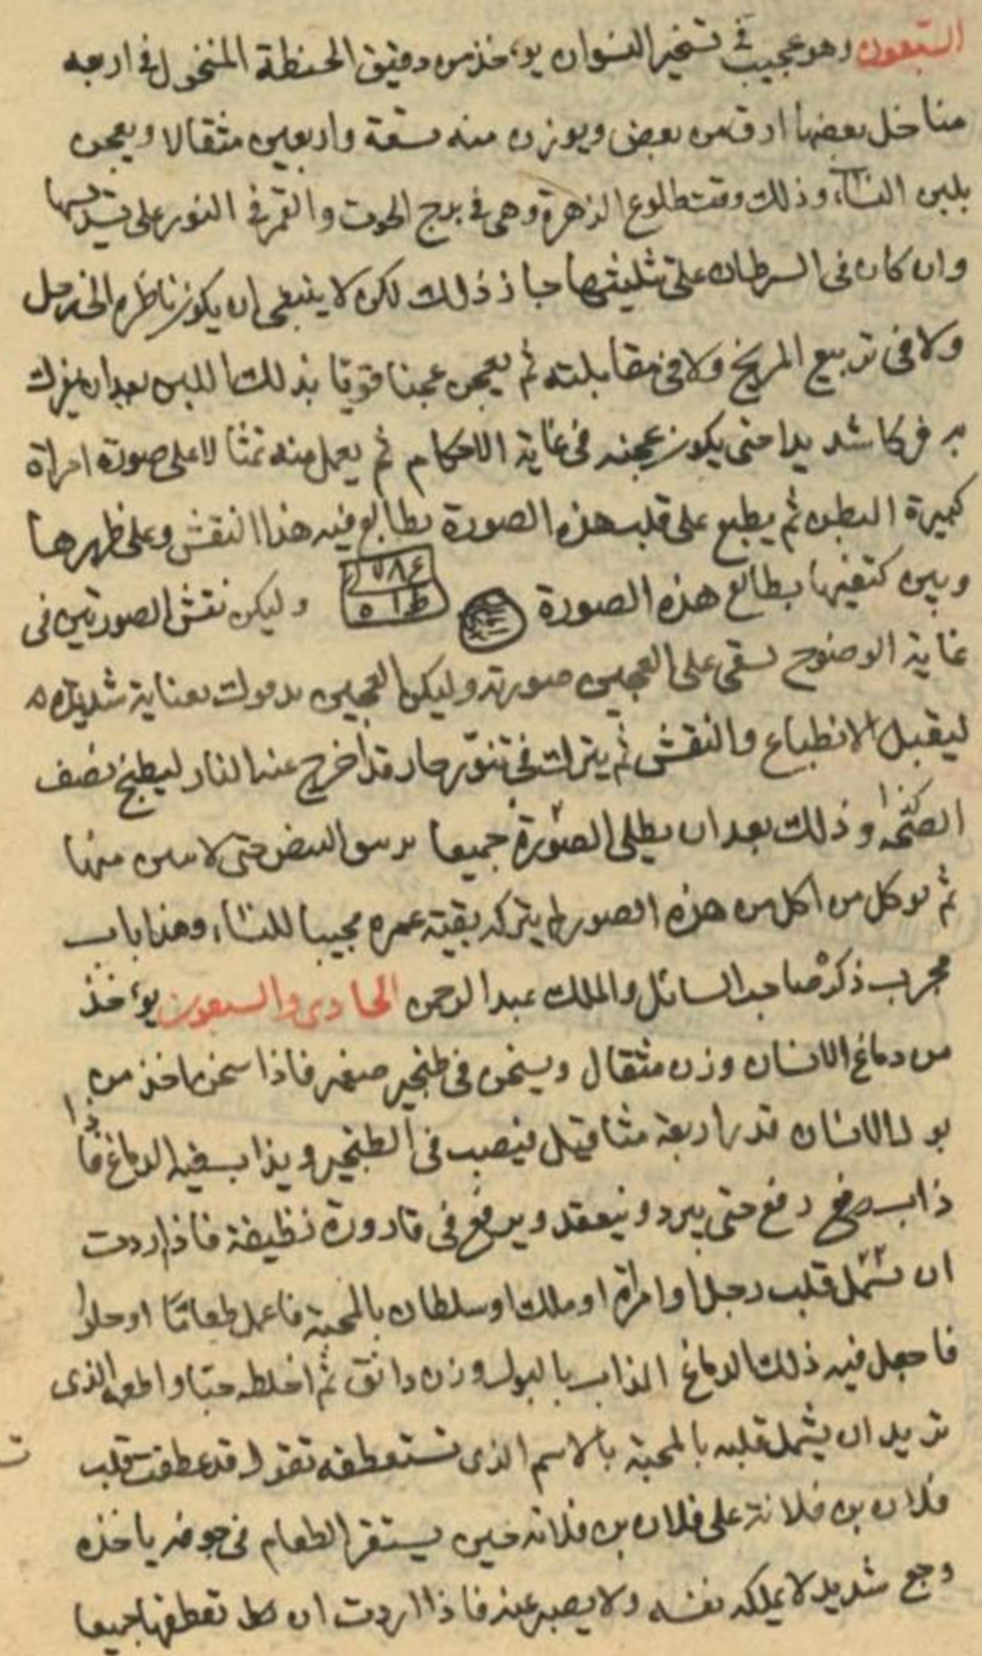 السبعون وهو عجيب فى تسخير النسوان يوءخذ من دقيق الحنطة المنخول فى اربعه
مناخل بعضها ادق من بعض ويوزن منه تسعة واربعين مثقالا ويعجن
بلبن النساء وذلك وقت طلوع الزهرة وهى فى برج الحوت والقمر فى الثور على تسديسها
وان كان فى السرطان على تثليثها جاز ذلك لكن لا ينبغى ان يكون ناظره الى زحل
ولا فى تربيع المريخ ولا فى مقابلته ثم يعجن عجنا قويا بذلك اللبن بعد ان يفرك
به فركا شديدا حتى يكون عجنه فى غاية الاحكام ثم يعمل منه تمثالا على صورة امراة
كبيرة البطن ثم يطبع على قلب هذه الصورة بطابع فيه هذا النقش وعلى ظهرها
وبين كتفيها بطابع هذه الصورة وليكن نقش الصورتين فى
غاية الوضوح لتبقى على العجين صورته وليكن العجين مدعوك بعناية شديده
ليقبل الانطباع والنقش ثم يترك فى تنور حار قد اخرج عنه النار ليطبخ نصف
وذلك بعد ان يطلى الصورة جميعا البيض حتى لا منها
ثم يوكل من اكل من هذه الصور لم يتركه بقية عمره محببا للنساء وهذا باب
مجرب ذكره صاحب السائل والملك عبد الرحمن الحادى والسبعون يوءخذ
من دماغ الانسان وزن مثقال ويسخن فى طنجير صغير فاذا سخن ياخذ من
بول الانسان قدر اربعة مثاقيل فيصب فى الطنجير ويذاب فيه الدماغ فاذا
ذاب رفع حتى يبرد وينعقد ويرفع فى قارورة نظيفة فاذا اردت
ان تشمل قلب رجل او امراة او ملك او سلطان بالمحبة فاعمل طعاما او حلوا
فاجعل فيه ذلك الدماغ المذاب بالبول وزن دانق ثم اخلطه جيدا واطعمه الذى
تريد ان يشمل قلبه بالمحبة بالاسم الذى تستعطفه تقول قد عطفت قلب
فلان بن فلانة على فلان بن فلانه حين يستقر الطعام فى جوفه ياخذه
وجع شديد لا يملكه نفسه ولا يصبر عنه فاذا اردت ان تعطفها جميعا